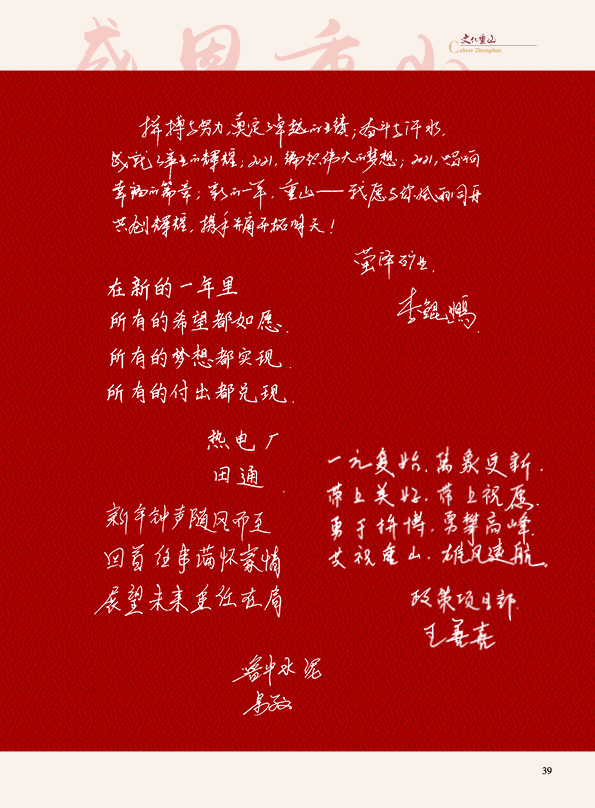 感恩重山
文化重山
Culture Zhongshan
拼搏与努力,奠定了卓越的业绩;奋斗与汗水,
成就了率先的辉煌;2021,编织伟大的梦想;2021,唱响
幸福的篇章;新的一年,重山——我愿与你风雨同舟
共创辉煌,携手并肩开拓明天!
萤泽矿业
李鲲鹏
在新的一年里
所有的希望都如愿.
所有的梦想都实现.
所有的付出都兑现.
热电厂
田通.
新年钟声随风而至
回首往事满怀豪情
展望未来重任在肩
鲁中水泥
一元复始.万象更新.
带上美好.带上祝愿.
勇于拼博.勇攀高峰.
共祝重山.雄风远航。
政策项目部.
王善亮
39